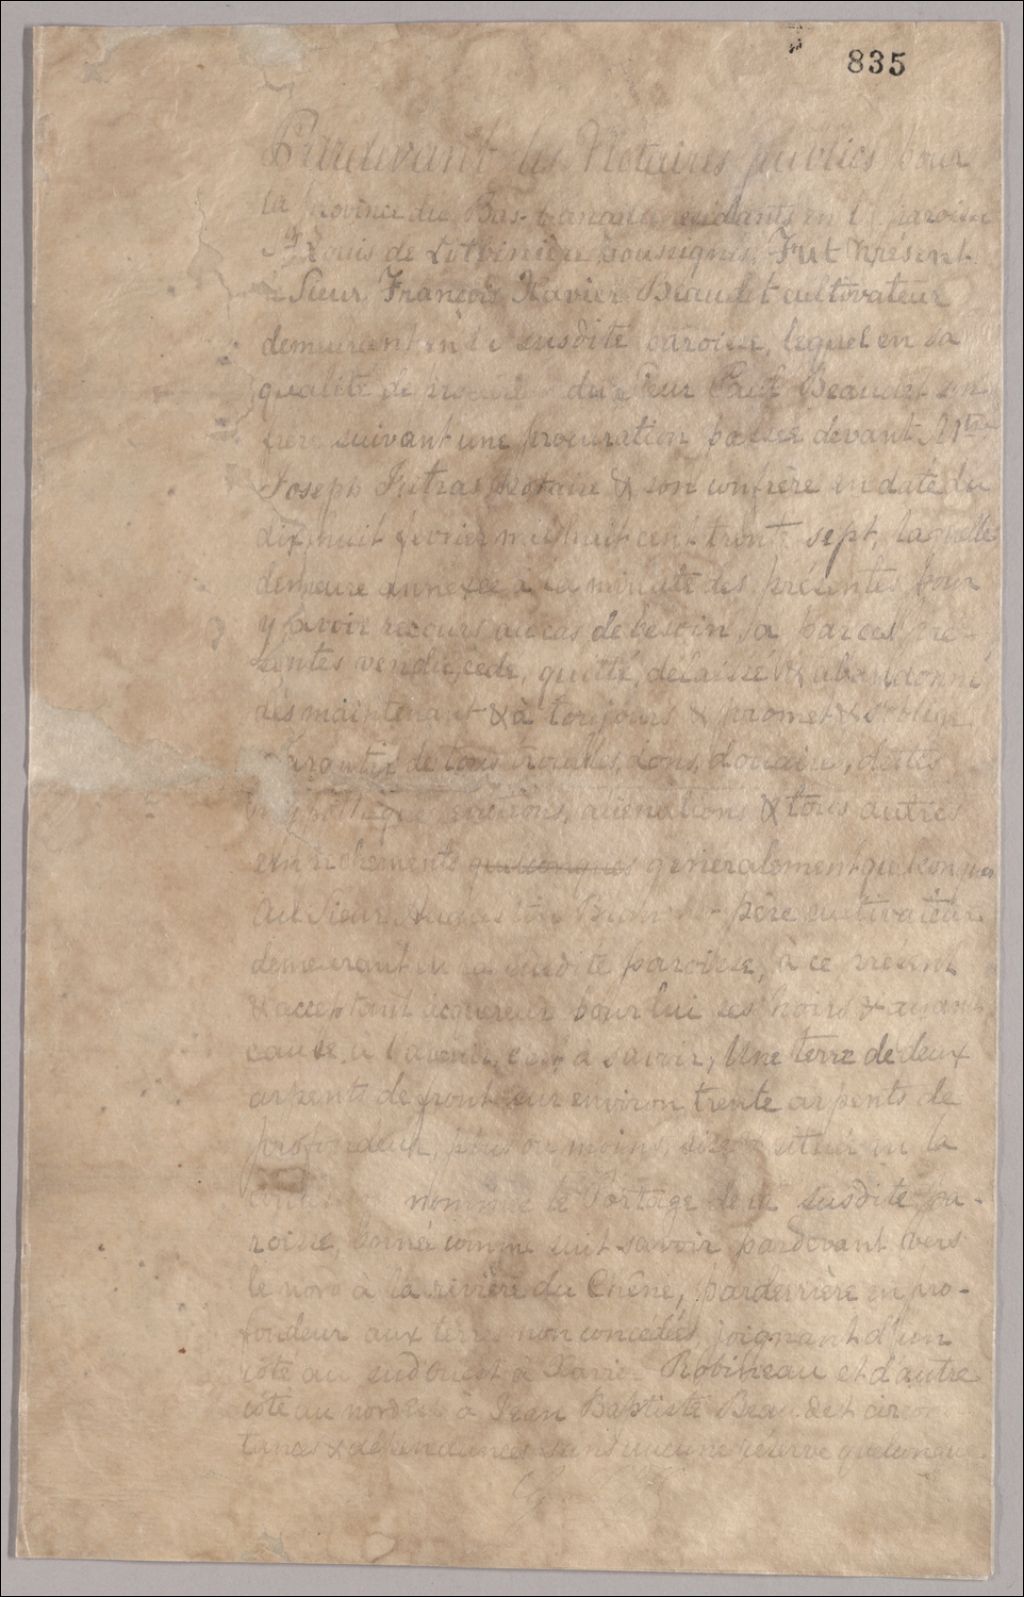 835
Pardevant les Notaires publics pour
la province du Bas-Canada residants en la paroisse
St Louis de Lotbinière soussignés, Fut présent
Sieur François Xavier Beaudet cultivateur
demeurant en la susdite paroisse, lequel en sa
qualité de du Sieur Paul Beaudet son
frère suivant une procuration passée devant Mtre
Joseph Jutras Notaire & son confrère en date du
dix huit fevrier mil huit cent trente sept, laquelle
demeure annexée à la minute des présentes pour
y avoir recours au cas de besoin, a par ces pré-
sentes vendu, cedé, quitté, délaissé & abandonné
dès maintenant & à toujours & promet & s'oblige
garantir de tous troubles, dons, douaires, dettes
hypothèques, evictions, alienations & tous autres
empêchements quelconques généralement quelconques
Au Sieur père cultivateur
demeurant en la susdite paroisse, à ce présent
& acceptant acquereur pour lui ses hoirs & ayant
cause à l'avenir, c'est à savoir, Une terre de deux
arpents de front sur environ trente arpents de
profondeur, plus ou moins, sise & située en la
nommée le Portage de la susdite pa-
roisse, bornée comme suit savoir pardevant vers
le nord à la rivière du Chêne, parderrière en pro-
fondeur aux terres non concedées, joignant d'un
côté au sud ouest à Xavier Robineau et d'autre
côté au nord est à Jean Baptiste Beaudet circons
tances & dépendances sans aucune réserve quelconque